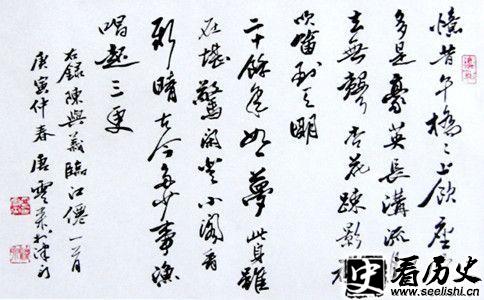 憶昔午橋〻上飲座
多是豪英長溝流
去無聲杏花疎影
吹笛到天明
二十餘年如一夢此身雖
在堪驚閒登小閣看
新晴古今多少事漁
唱起三更
右錄陳與義臨江僊一首
庚寅仲春唐雲來於津門
史看历史
www.seelishi.cn